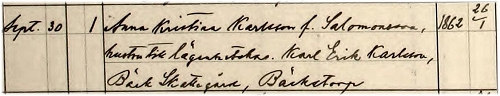 Sept. 30 1 Anna Kristina Karlsson f. Salomonsson, 1862 26/1
hustru till lägenhetsäg. Karl Erik Karlsson,
Bäck Skattegård, Bäckstorp